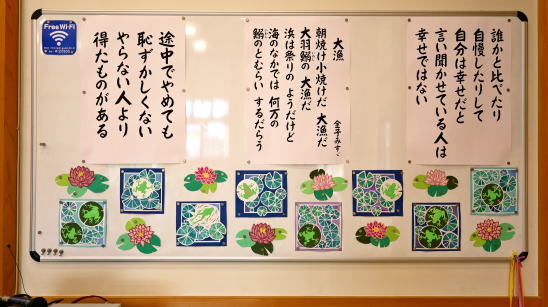 Free Wi-Fi
誰かと比べたり
自慢したりして
自分は幸せだと
言い聞かせている人は
幸せではない
大漁
金子みすゞ
朝焼け小焼けだ 大漁だ
大羽鰮の 大漁だ
浜は祭りの ようだけど
海のなかでは 何万の
鰮のとむらい するだろう
途中でやめても
恥ずかしくない
やらない人より
得たものがある